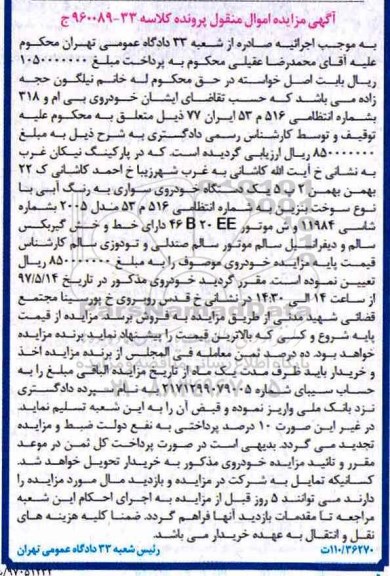 آگهی مزایده اموال منقول پرونده کلاسه ۳۳-۹۶۰۰۸۹ ج
به موجب اجرائیه صادره از شعبه ۳۳ دادگاه عمومی تهران محکوم
علیه آقای محمدرضا عقیلی محکوم به پرداخت مبلغ ۱۰۵۰۰۰۰۰۰۰
ریال بابت اصل خواسته در حق محکوم له خانم نیلگون حجه
زاده می باشد که حسب تقاضای ایشان خودروی بی ام و ۳۱۸
بشماره انتظامی ۵۱۶ م ۵۳ ایران ۷۷ ذیل متعلق به محکوم علیه
توقیف و توسط کارشناس رسمی دادگستری به شرح ذیل به مبلغ
۸۵۰۰۰۰۰۰۰ ریال ارزیابی گردیده است. که در پارکینگ نیکان غرب
به نشانی خ آیت الله کاشانی به غرب شهرزیبا خ احمد کاشانی ک ۲۲
بهمن بهمن ۲ پ ۵ یک دستگاه خودروی سواری به رنگ آبی با
نوع سوخت بنزین به شماره انتظامی ۵۱۶ م ۵۳ مدل 2005 بشماره
شاسی ۱۱۹۸۴ و ش موتور 46 B ۲۰ EE دارای خط و خش گیربکس
سالم و دیفرانسیل سالم موتور سالم صندلی و تودوزی سالم کارشناس
قیمت پایه مزایده خودروی موصوف را به مبلغ ۸۵۰۰۰۰۰۰۰ ریال
تعیین نموده است. مقرر گردید خودروی مذکور در تاریخ ۹۷/۵/۱۴
از ساعت ۱۴ الی ۱۴:۳۰ در نشانی خ قدس روبروی خ پورسینا مجتمع
قضائی شهید صدر از طریق مزایده به فروش برسد. مزایده از قیمت
پایه شروع و کسی که بالاترین قیمت را پیشنهاد نماید برنده مزایده
خواهد بود. ده درصد ثمن معامله فی المجلس از برنده مزایده اخذ
و خریدار باید ظرف مدت یک ماه از تاریخ مزایده الباقی مبلغ را به
حساب سیبای شماره ۲۱۷۱۲۹۹۰۷۹۰۵ به نام سپرده دادگستری
نزد بانک ملی واریز نموده و فیش آن را به این شعبه تسلیم نماید.
در غیر این صورت ۱۰ درصد پرداختی به نفع دولت ضبط و مزایده
تجدید می گردد. بدیهی است در صورت پرداخت کل ثمن در موعد
مقرر و تائید مزایده خودروی مذکور به خریدار تحویل خواهد شد.
کسانیکه تمایل به شرکت در مزایده و بازدید مال مورد مزایده را
دارند می توانند ۵ روز قبل از مزایده به اجرای احکام این شعبه
مراجعه تا مقدمات بازدید آنها فراهم گردد. ضمنا کلیه هزینه های
نقل و انتقال به عهده خریدار می باشد.
۱۱۰/۳۶۲۷۰ت رئیس شعبه ۳۳ دادگاه عمومی تهران